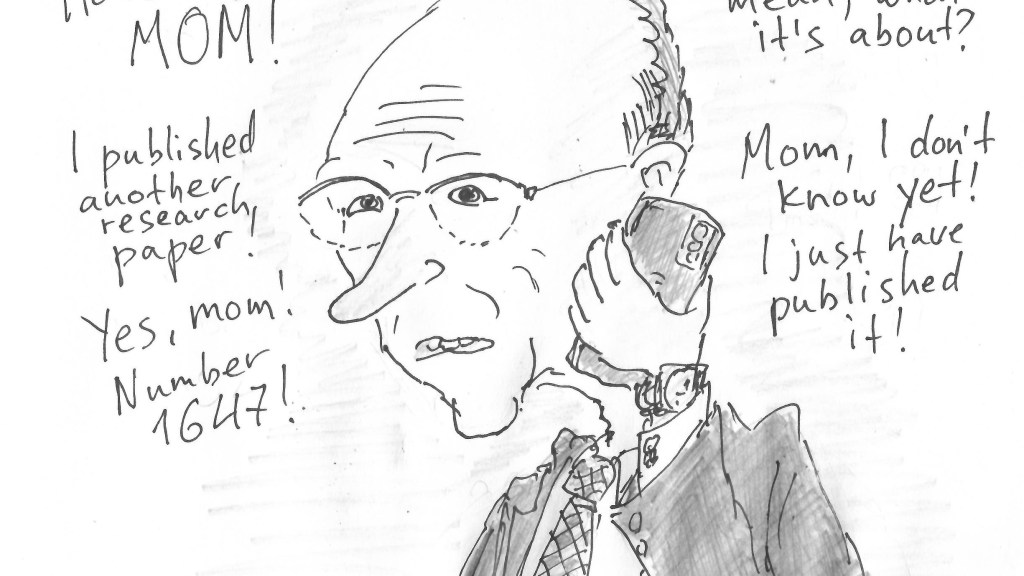 MOM!
I published
another
research
paper!
Yes, mom!
Number
1647!
it's about?
Mom, I don't
know yet!
I just have
published
it!